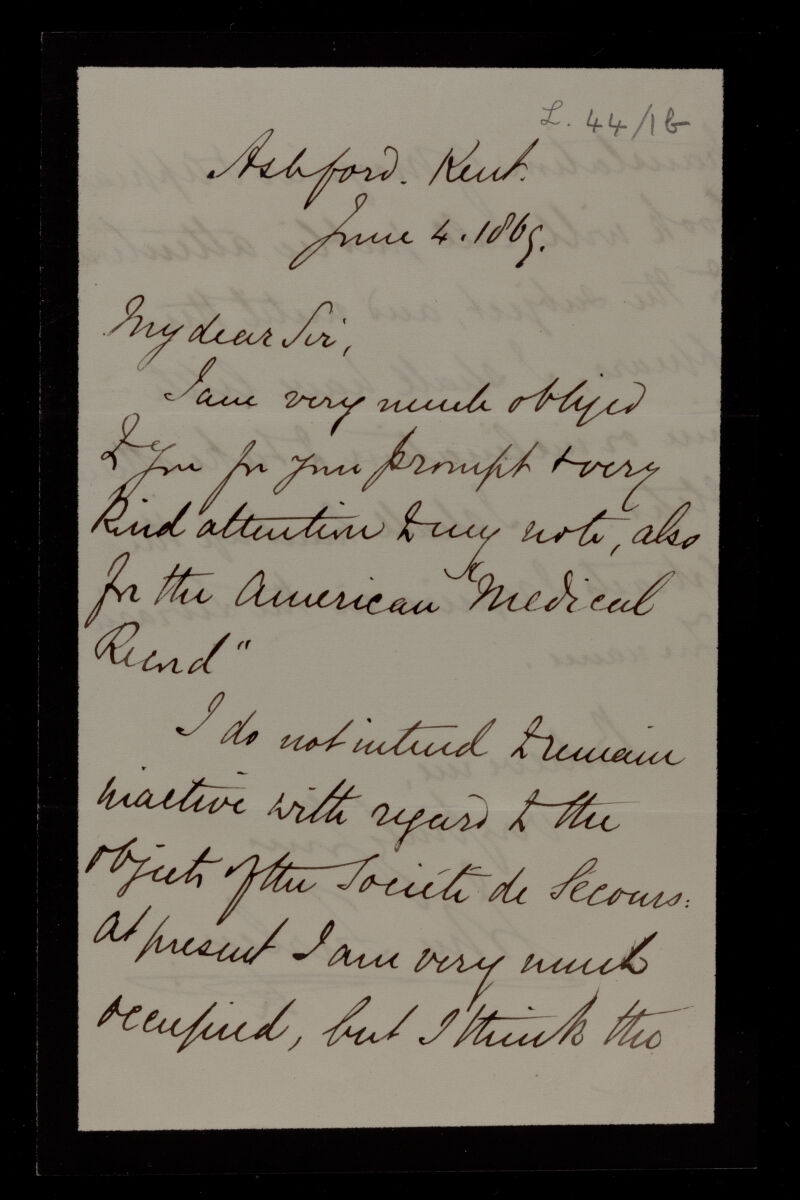 L. 44/1b
Ashford. Kent.
June 4. 1869.
My dear Sir,
I am very much obliged
to you for your prompt & very
kind attention to my note, also
for the American "Medical
Record"
I do not intend to remain
inactive with regard to the
objects of the Société de Secours:
at present I am very much
occupied, but I think the